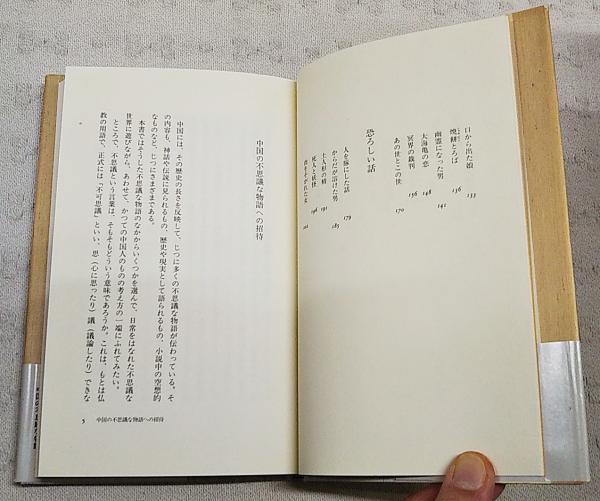 口から出た娘 133
焼餅とろば 136
幽霊になった男 141
大海亀の恋 148
冥界の裁判 156
あの世とこの世 170
恐ろしい話
人を豚にした話 179
からだが溶けた男 185
土人形の情 191
死人と妖怪 196
首をすげた女
中国の不思議な物語への招待
中国には、その歴史の長さを反映して、じつに多くの不思議な物語が伝わっている。そ
の内容も、神話や伝説に見られるもの、歴史や現実として語られるもの、小説中の空想的
なものなど、じつにさまざまである。
本書ではそうした不思議な物語のなかからいくつかを選んで、日常をはなれた不思議な
世界に遊びながら、あわせて、かつての中国人のものの考え方の一端にふれてみたい。
ところで、不思議という言葉は、そもそもどういう意味であろうか。これは、もとは仏
教の用語で、正式には「不可思議」といい、思（心に思ったり）議（議論したり）できな
5 中国の不思議な物語への招待